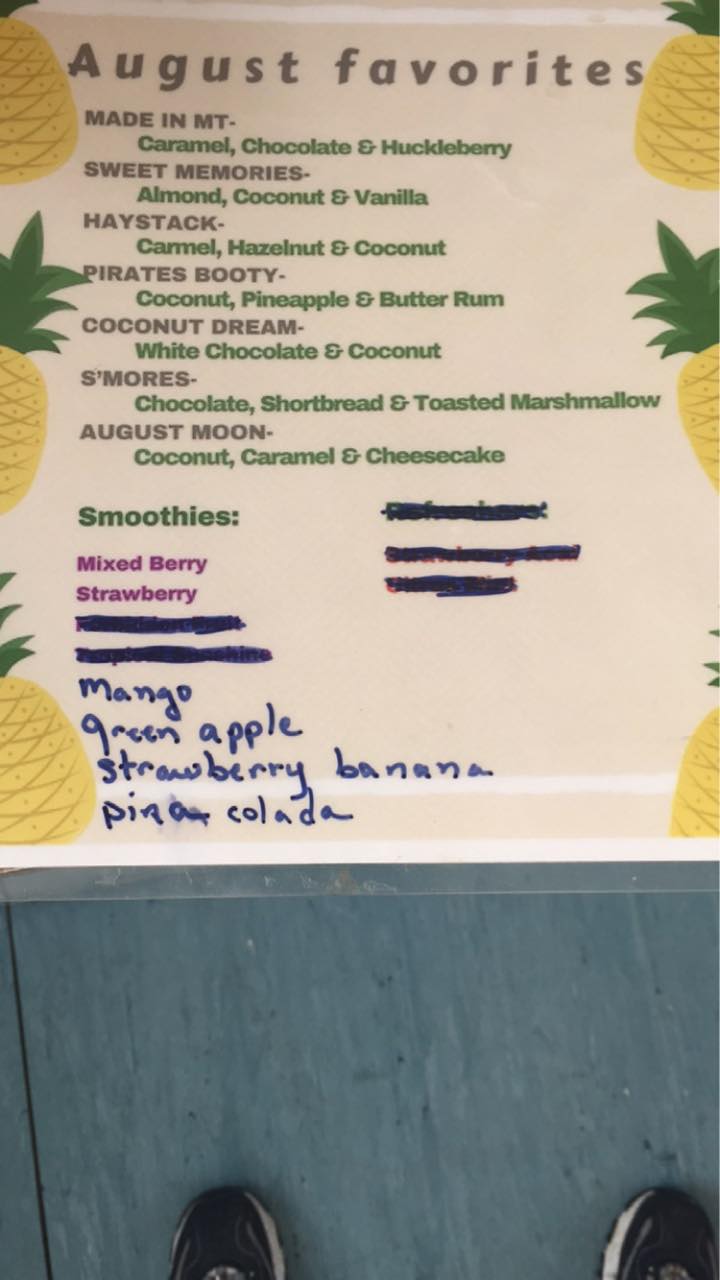 August favorites
MADE IN MT-
Caramel, Chocolate & Huckleberry
SWEET MEMORIES-
Almond, Coconut & Vanilla
HAYSTACK-
Carmel, Hazelnut & Coconut
PIRATES BOOTY-
Coconut, Pineapple & Butter Rum
COCONUT DREAM-
White Chocolate & Coconut
S'MORES-
Chocolate, Shortbread & Toasted Marshmallow
AUGUST MOON-
Coconut, Caramel & Cheesecake
Smoothies:
Mixed Berry
Strawberry
Mango
green apple
strawberry banana
pina colada